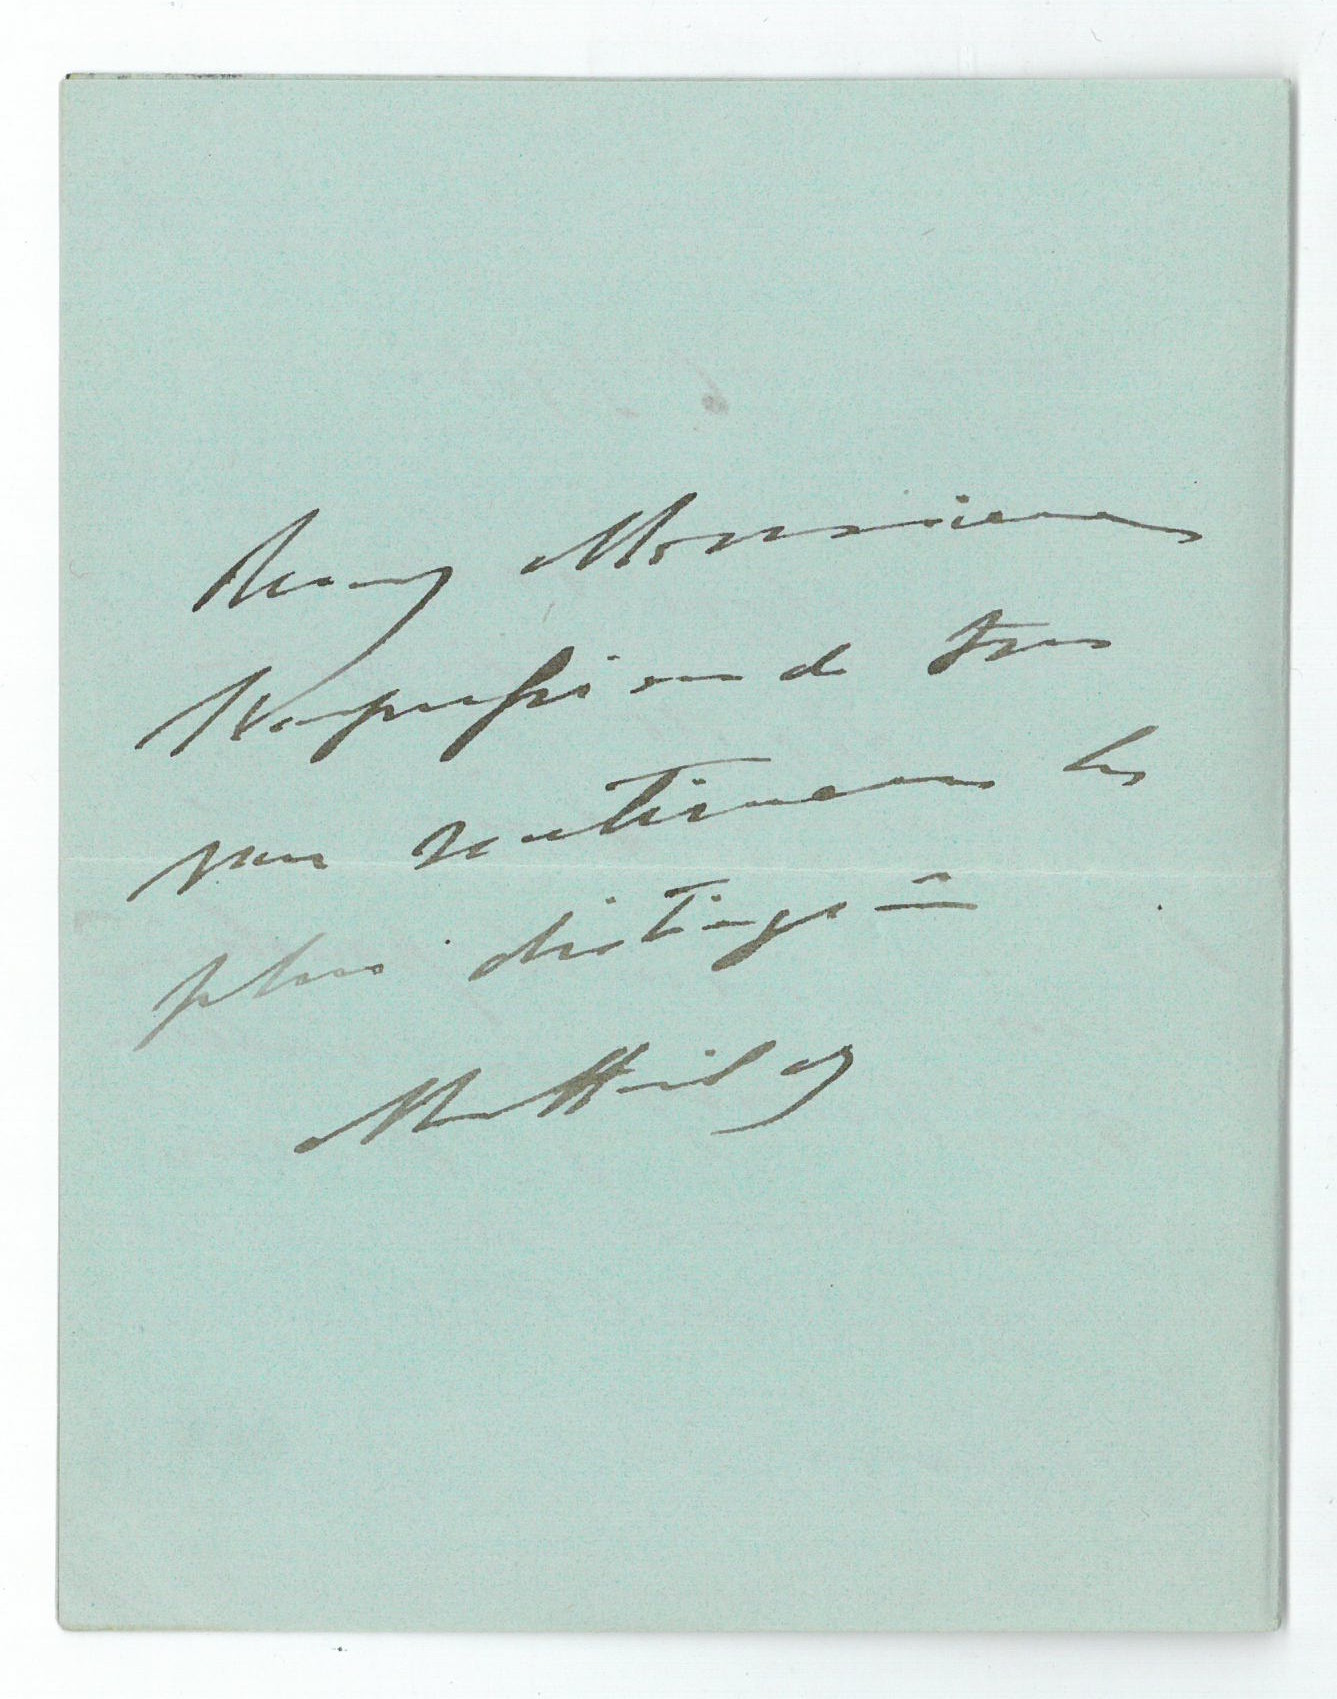 Monsieur
l'expression de tous
mes sentiments les
plus distingués
Mathilde